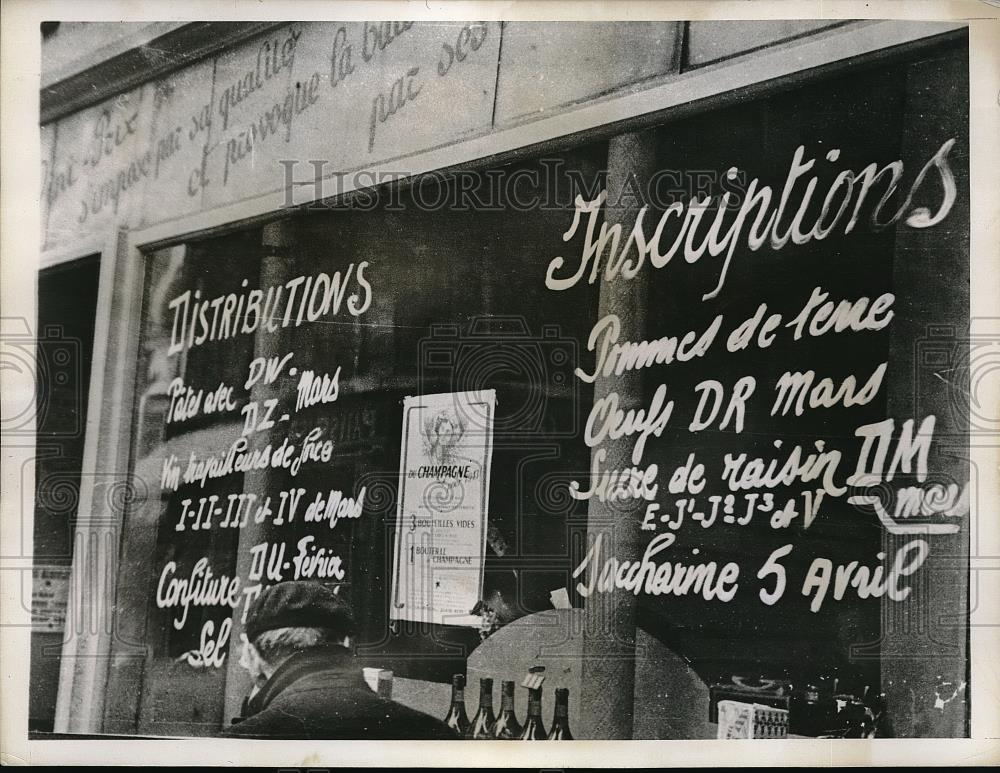 Prix
s'impose par sa qualité
et provoque la
par ses
DISTRIBUTIONS
Pâtes avec DW-
DZ - Mars
Vin travailleurs de force
I-II-III et IV de Mars
Confiture DU-Février
Sel
DU CHAMPAGNE
3 BOUTEILLES VIDES
1 BOUTEILLE
CHAMPAGNE
Inscriptions
Pommes de terre
Oeufs DR Mars
Sucre de raisin DM
E-J¹-J²-J³ et V mars
Saccharine 5 Avril
HISTORIC IMAGES